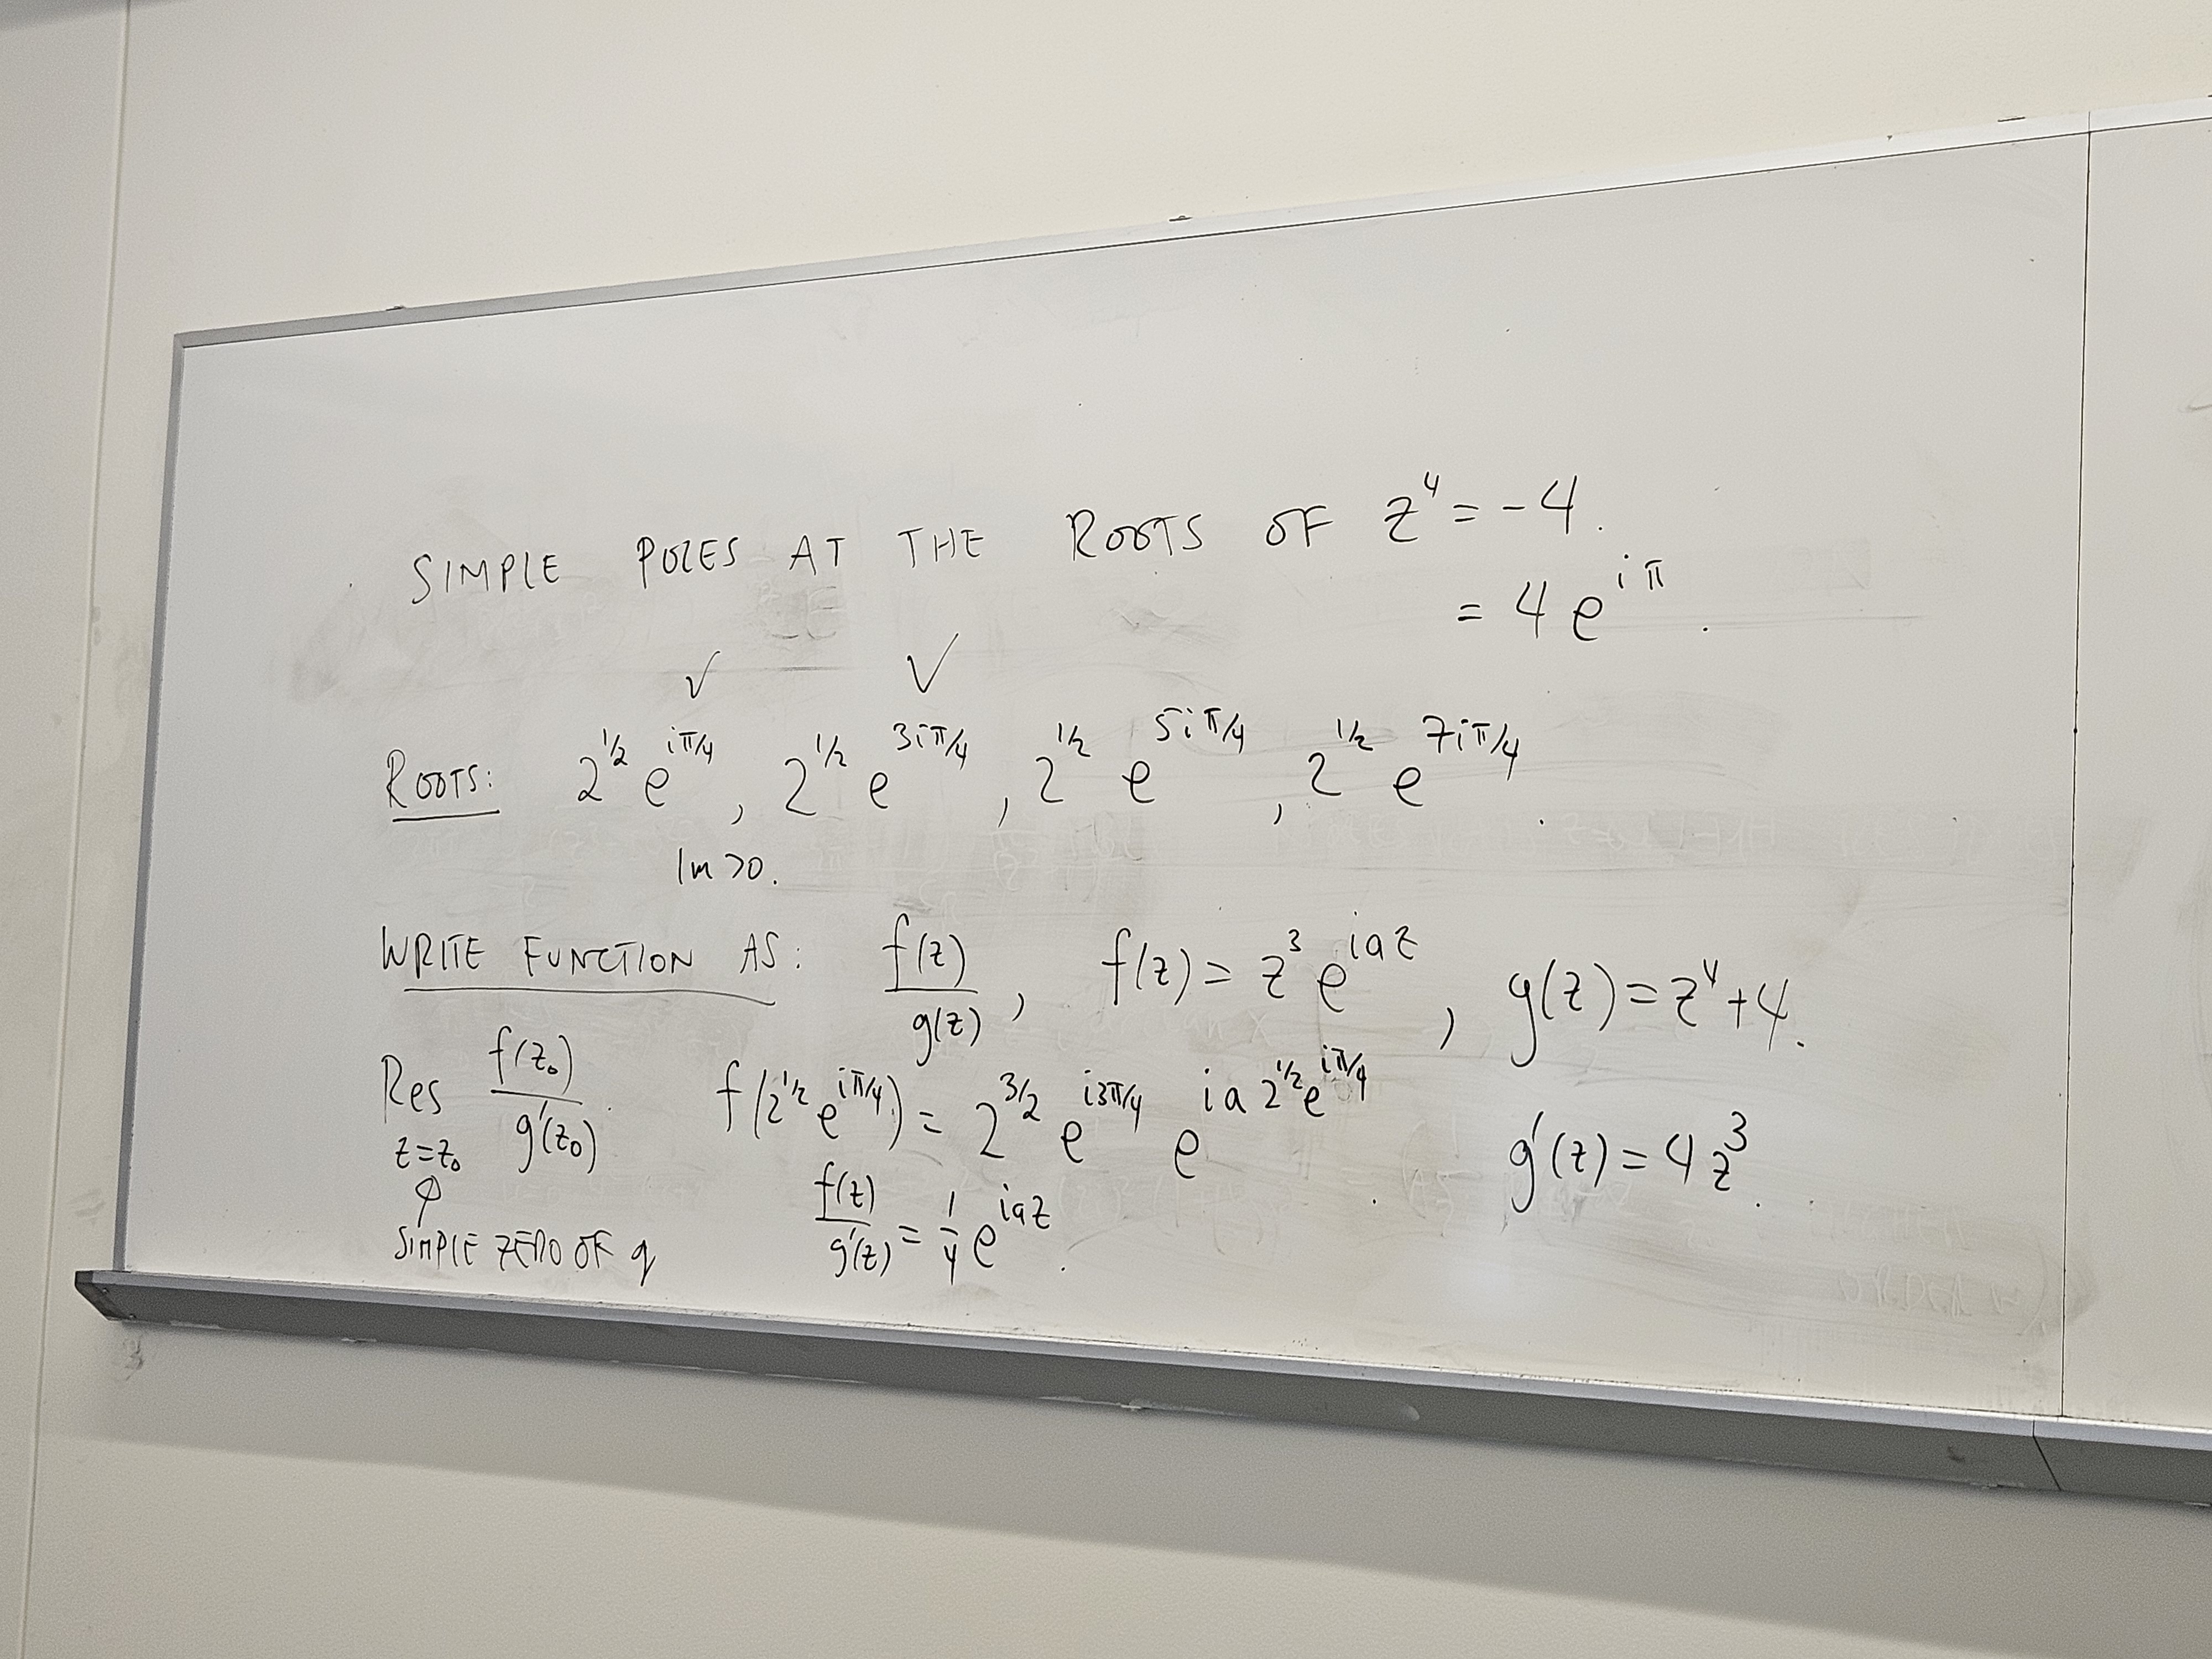 SIMPLE POLES AT THE ROOTS OF z⁴ = -4.
= 4 e^{iπ} .
✓ ✓
ROOTS: 2^{1/2} e^{iπ/4} , 2^{1/2} e^{3iπ/4} , 2^{1/2} e^{5iπ/4} , 2^{1/2} e^{7iπ/4} .
Im >0.
WRITE FUNCTION AS: f(z)/g(z) , f(z) = z³ e^{iaz} , g(z) = z⁴+4.
Res z=z₀ f(z₀)/g'(z₀) . f(2^{1/2} e^{iπ/4}) = 2^{3/2} e^{i3π/4} e^{ia 2^{1/2} e^{iπ/4}} . g'(z) = 4z³.
SIMPLE ZERO OF g f(z)/g'(z) = 1/4 e^{iaz} .